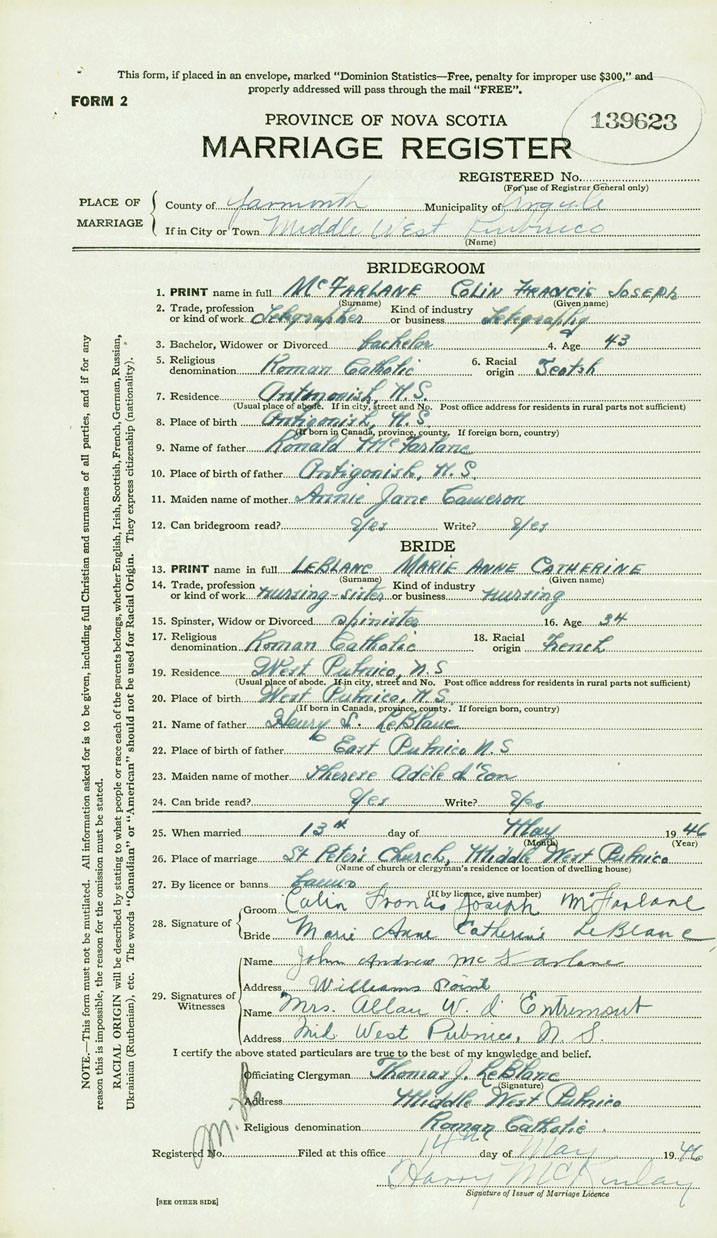 This form, if placed in an envelope, marked "Dominion Statistics—Free, penalty for improper use $300," and
properly addressed will pass through the mail "FREE".
FORM 2
139623
PROVINCE OF NOVA SCOTIA
MARRIAGE REGISTER
REGISTERED No.
(For use of Registrar General only)
PLACE OF MARRIAGE
County of Yarmouth Municipality of Argyle
If in City or Town Middle West Pubnico
(Name)
BRIDEGROOM
1. PRINT name in full McFARLANE COLIN FRANCIS JOSEPH
(Surname) (Given name)
2. Trade, profession or kind of work Telegrapher Kind of industry or business Telegraphy
3. Bachelor, Widower or Divorced bachelor 4. Age 43
5. Religious denomination Roman Catholic 6. Racial origin Scotch
7. Residence Antigonish, N.S.
(Usual place of abode. If in city, street and No. Post office address for residents in rural parts not sufficient)
8. Place of birth Antigonish, N.S
(If born in Canada, province, county. If foreign born, country)
9. Name of father Ronald McFarlane
10. Place of birth of father Antigonish, N.S.
11. Maiden name of mother Annie Jane Cameron
12. Can bridegroom read? Yes Write? Yes
BRIDE
13. PRINT name in full LEBLANC MARIE ANNE CATHERINE
(Surname) (Given name)
14. Trade, profession or kind of work nursing-sister Kind of industry or business nursing
15. Spinster, Widow or Divorced spinister 16. Age 34
17. Religious denomination Roman Catholic 18. Racial origin French
19. Residence West Pubnico, N.S
(Usual place of abode. If in city, street and No. Post office address for residents in rural parts not sufficient)
20. Place of birth West Pubnico, N.S
(If born in Canada, province, county. If foreign born, country)
21. Name of father Henry S. LeBlanc
22. Place of birth of father East Pubnico N.S
23. Maiden name of mother Therese Adèle d'Eon
24. Can bride read? Yes Write? Yes
25. When married 13th day of May 1946
(Month) (Year)
26. Place of marriage St Peter's Church, Middle West Pubnico
(Name of church or clergyman's residence or location of dwelling house)
27. By licence or banns banns
(If by licence, give number)
28. Signature of
Groom Colin Francis Joseph McFarlane
Bride Marie Anne Catherine LeBlanc
29. Signatures of Witnesses
Name John Andrew McFarlane
Address Williams Point
Name Mrs. Allan W. d'Entremont
Address Mid West Pubnico, N.S.
I certify the above stated particulars are true to the best of my knowledge and belief.
Officiating Clergyman Thomas J. LeBlanc
(Signature)
Address Middle West Pubnico
Religious denomination Roman Catholic.
Registered No. Filed at this office 14th day of May 1946
Harry McKinlay
Signature of Issuer of Marriage Licence
[SEE OTHER SIDE]
NOTE.—This form must not be mutilated. All information asked for is to be given, including full Christian and surnames of all parties, and if for any
reason this is impossible, the reason for the omission must be stated.
RACIAL ORIGIN will be described by stating to what people or race each of the parents belongs, whether English, Irish, Scottish, French, German, Russian,
Ukrainian (Ruthenian), etc. The words "Canadian" or "American" should not be used for Racial Origin. They express citizenship (nationality).